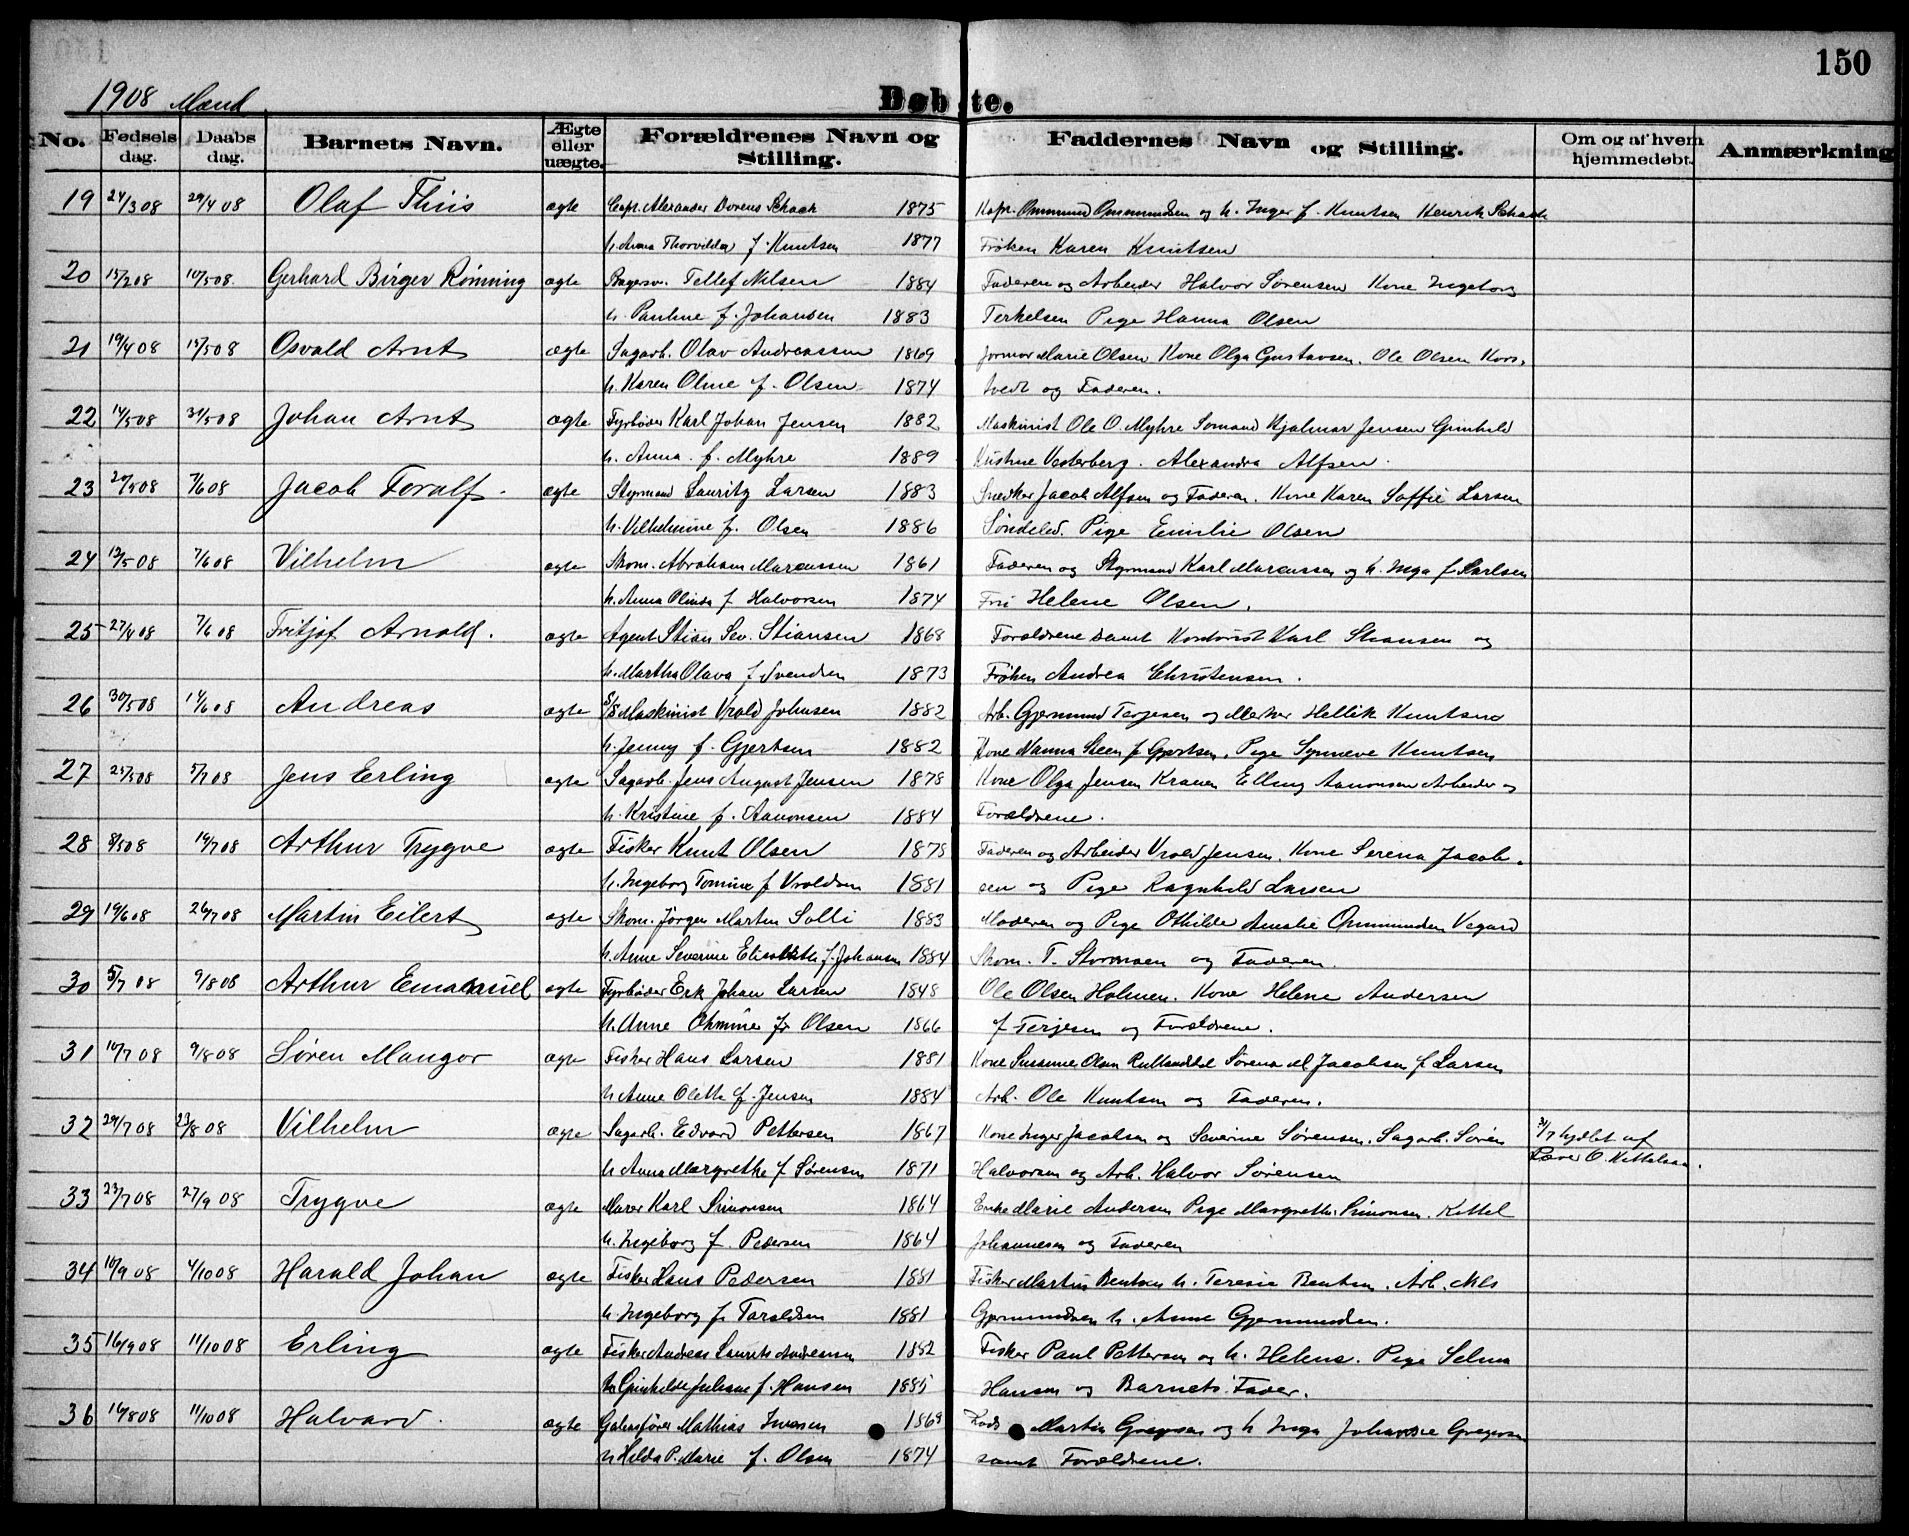 150
1908 Mænd
Døbte.
No. Fødsels dag. Daabs dag. Barnets Navn. Ægte eller uægte. Forældrenes Navn og Stilling. Faddernes Navn og Stilling. Om og af hvem hjemmedøbt. Anmærkning
19 24/3 08 29/4 08 Olaf Thiis ægte Capt. Alexander Dorens Schack 1875 Kapt. Ommund Ommundsen og h. Inger f. Knutsen Henrik Schack
h. Anna Thorvilda f. Knutsen 1877 Frøken Karen Knutsen
20 15/2 08 10/5 08. Gerhard Birger Rønning ægte Bagersv. Tellef Nilsen 1884 Faderen og Arbeider Halvor Sørensen Kone Ingeborg
h. Pauline f. Johansen 1883 Terkelsen Pige Hanna Olsen
21 19/4 08 17/5 08 Osvald Arnt ægte Sagarb. Olav Andreassen 1869 Jormor Marie Olsen Kone Olga Gustavsen. Ole Olsen Kors-
h. Karen Oline f. Olsen 1874 tvedt og Faderen.
22 14/5 08 31/5 08 Johan Arnt ægte Fyrbøder Karl Johan Jensen 1882 Maskinist Ole O. Myhre Sømand Hjalmar Jensen Gunhild
h. Anna f. Myhre 1889 Kristine Vesterberg. Alexandra Alfsen.
23 20/5 08 7/6 08 Jacob Toralf. ægte Styrmand Lauritz Larsen 1883 Snedker Jacob Alfsen og Faderen. Kone Karen Soffie Larsen
h. Vilhelmine f. Olsen 1886 Søndeled. Pige Emilie Olsen
24 12/5 08 7/6 08 Vilhelm ægte Skom. Abraham Marcussen 1861 Faderen og Styrmand Karl Marcussen og h. Inga f. Karlsen
h. Anna Olinda f. Halvorsen 1874 Fru Helene Olsen.
25 27/4 08 7/6 08 Fritjof Arnold. ægte Agent Stian Sev. Stiansen 1868 Forældrene samt Kontorist Karl Stiansen og
h. Martha Olava f. Svendsen 1873 Frøken Andrea Christensen.
26 30/5 08 14/6 08 Andreas ægte S/S Maskinist Vrold Johnsen 1882 Arb. Gjermund Terjesen og Merker Hellik Knutsen
h. Jenny f. Gjertsen 1882 Kone Nanna Steen f. Gjertsen. Pige Synneve Knutsen
27 25/5 08 5/7 08 Jens Erling ægte Sagarb. Jens August Jensen 1878 Kone Olga Jensen Kranen Elling Aanonsen Arbeider og
h. Kristine f. Aanonsen 1884 Forældrene.
28 8/5 08 19/7 08 Arthur Trygve ægte Fisker Knut Olsen 1878 Faderen og Arbeider Vrold Jensen. Kone Serena Jacob-
h. Ingeborg Tomine f. Vroldsen 1881 sen og Pige Ragnhild Larsen
29 19/6 08 26/7 08 Martin Eilert ægte Skom. Jørgen Martin Solli 1883 Moderen og Pige Othilde Amalie Ommundsen Vegard
h. Anne Severine Elisabeth f. Johansen 1884 Skom. T. Stormoen og Faderen.
30 5/7 08 9/8 08 Arthur Emanuel ægte Fyrbøder Erk Johan Larsen 1848 Ole Olsen Holmen. Kone Helene Andersen
h. Anne Ohmine f. Olsen 1866 f. Terjesen og Forældrene.
31 10/7 08 9/8 08 Søren Mangor ægte Fisker Hans Larsen 1881 Kone Susanne Olsen Sørena M. Jacobsen f. Larsen
h. Anne Olette f. Jensen 1884 Arb. Ole Knutsen og Faderen.
32 29/7 08 23/8 08 Vilhelm ægte Sagarb. Edvard Pettersen 1867 Kone Inger Jacobsen og Severine Sørensen. Sagarb. Søren 31/7 hjdbt af
h. Anna Margrethe f. Sørensen 1871 Halvorsen og Arb. Halvor Sørensen Lærer O. Kittelsen.
33 23/7 08 27/9 08 Trygve ægte Murer Karl Simonsen 1864 Enke Marie Andersen Pige Margrethe Simonsen. Kittel
h. Ingeborg f. Pedersen 1864 Johannesen og Faderen
34 10/9 08 4/10 08 Harald Johan ægte Fisker Hans Pedersen 1881 Fisker Martin Bentsen h. Teresie Bentsen. Arb. Nils
h. Ingeborg f. Taraldsen 1881 Gjermundsen h. Anne Gjermundsen.
35 16/9 08 11/10 08 Erling ægte Fisker Andreas Laurits Andersen 1882 Fisker Paul Pettersen og h. Helene. Pige Selma
h. Gunhilde Juliane f. Hansen 1885 Hansen og Barnets Fader.
36 16/8 08 11/10 08 Halvard. ægte Galeasfører Mathias Iversen 1869 Lods Martin Gregersen og h. Inga Johanne Gregersen
h. Hilda P. Marie f. Olsen 1874 samt Forældrene.